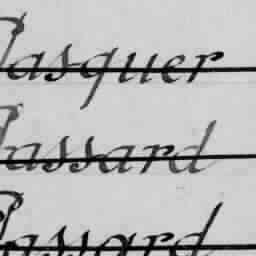 Pasquer
Passard
Passard